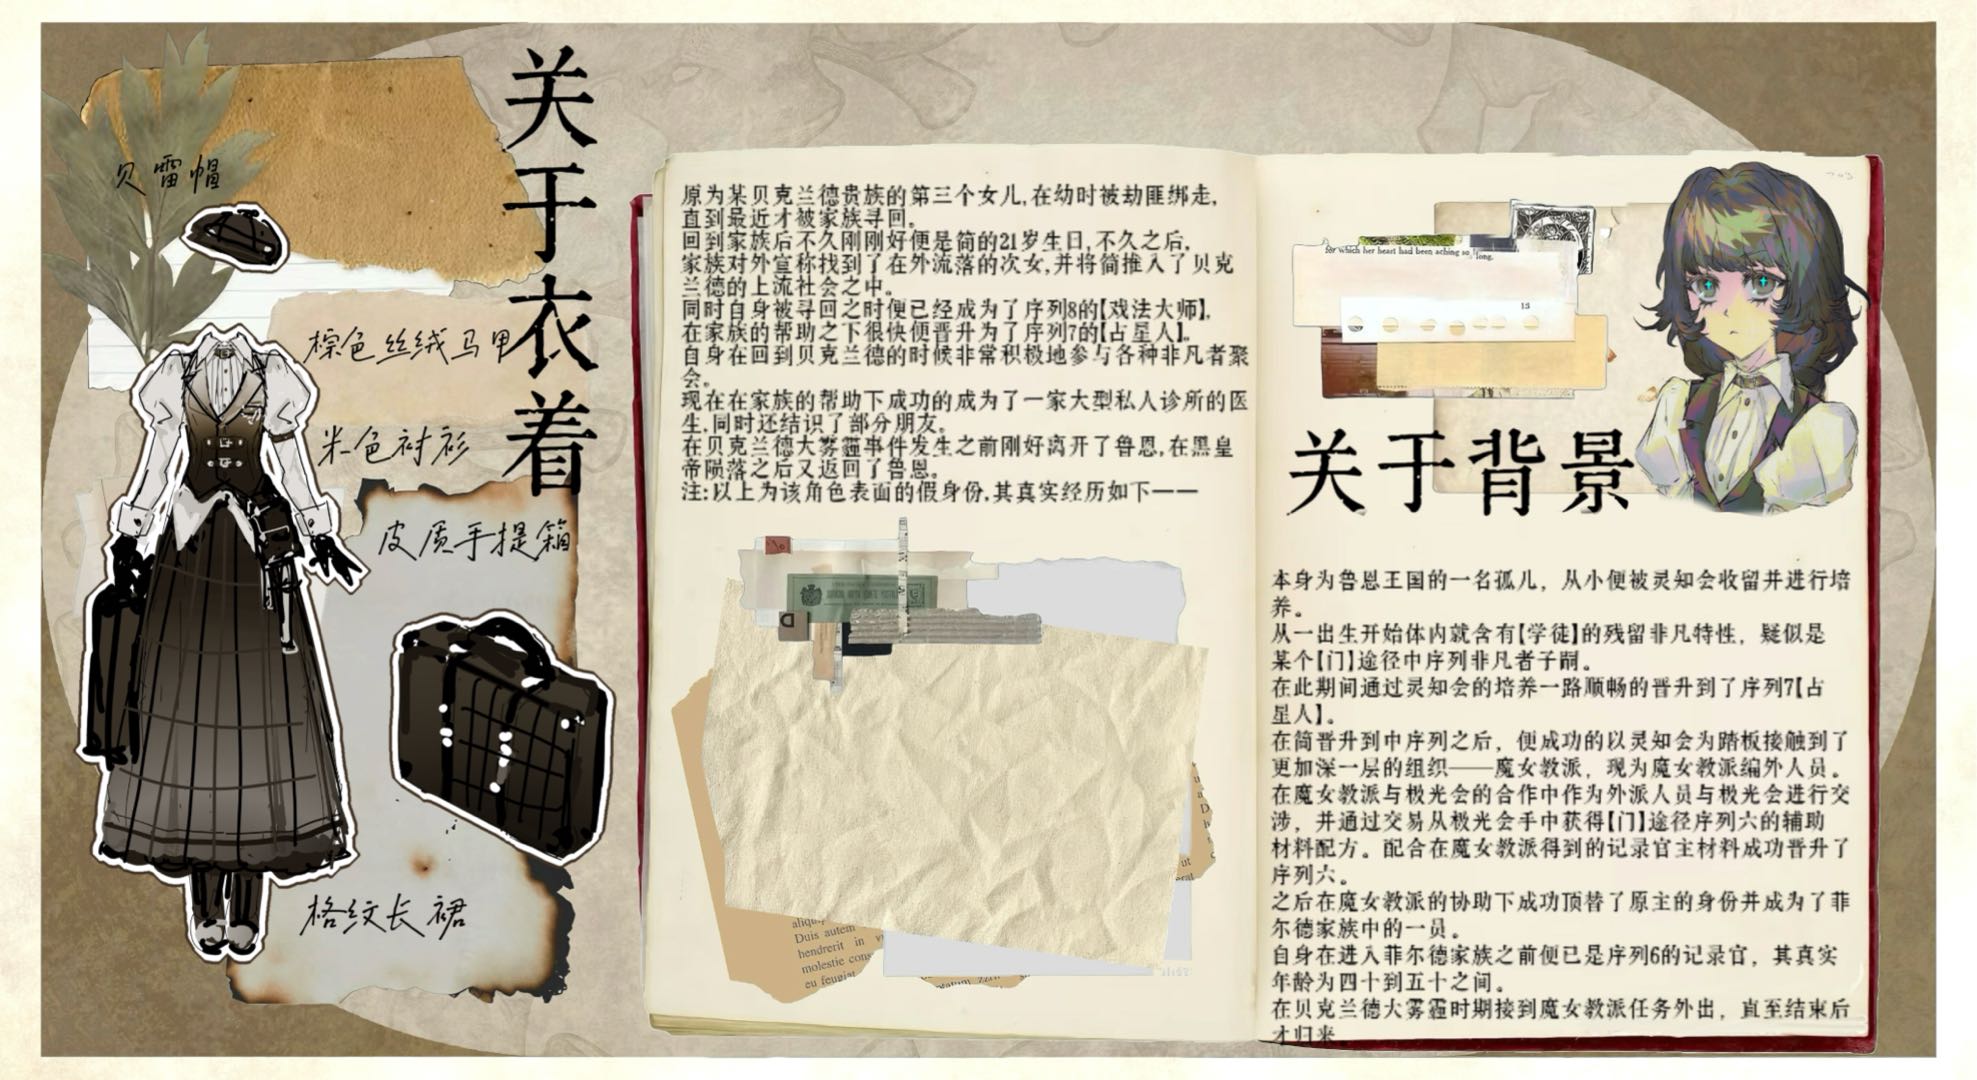 关于衣着
贝雷帽
棕色丝绒马甲
米色衬衫
皮质手提箱
格纹长裙
原为某贝克兰德贵族的第三个女儿,在幼时被劫匪绑走,
直到最近才被家族寻回。
回到家族后不久刚刚好便是简的21岁生日,不久之后,
家族对外宣称找到了在外流落的次女,并将简推入了贝克
兰德的上流社会之中。
同时自身被寻回之时便已经成为了序列8的【戏法大师】,
在家族的帮助之下很快便晋升为了序列7的【占星人】。
自身在回到贝克兰德的时候非常积极地参与各种非凡者聚
会。
现在在家族的帮助下成功的成为了一家大型私人诊所的医
生,同时还结识了部分朋友。
在贝克兰德大雾霾事件发生之前刚好离开了鲁恩,在黑皇
帝陨落之后又返回了鲁恩。
注:以上为该角色表面的假身份,其真实经历如下——
aliqu
Duis autem
hendrerit in v
molestie cons
eu feugiat
for which her heart had been aching so long.
13
关于背景
本身为鲁恩王国的一名孤儿，从小便被灵知会收留并进行培
养。
从一出生开始体内就含有【学徒】的残留非凡特性，疑似是
某个【门】途径中序列非凡者子嗣。
在此期间通过灵知会的培养一路顺畅的晋升到了序列7【占
星人】。
在简晋升到中序列之后，便成功的以灵知会为踏板接触到了
更加深一层的组织——魔女教派，现为魔女教派编外人员。
在魔女教派与极光会的合作中作为外派人员与极光会进行交
涉，并通过交易从极光会手中获得【门】途径序列六的辅助
材料配方。配合在魔女教派得到的记录官主材料成功晋升了
序列六。
之后在魔女教派的协助下成功顶替了原主的身份并成为了菲
尔德家族中的一员。
自身在进入菲尔德家族之前便已是序列6的记录官，其真实
年龄为四十到五十之间。
在贝克兰德大雾霾时期接到魔女教派任务外出，直至结束后
才归来。